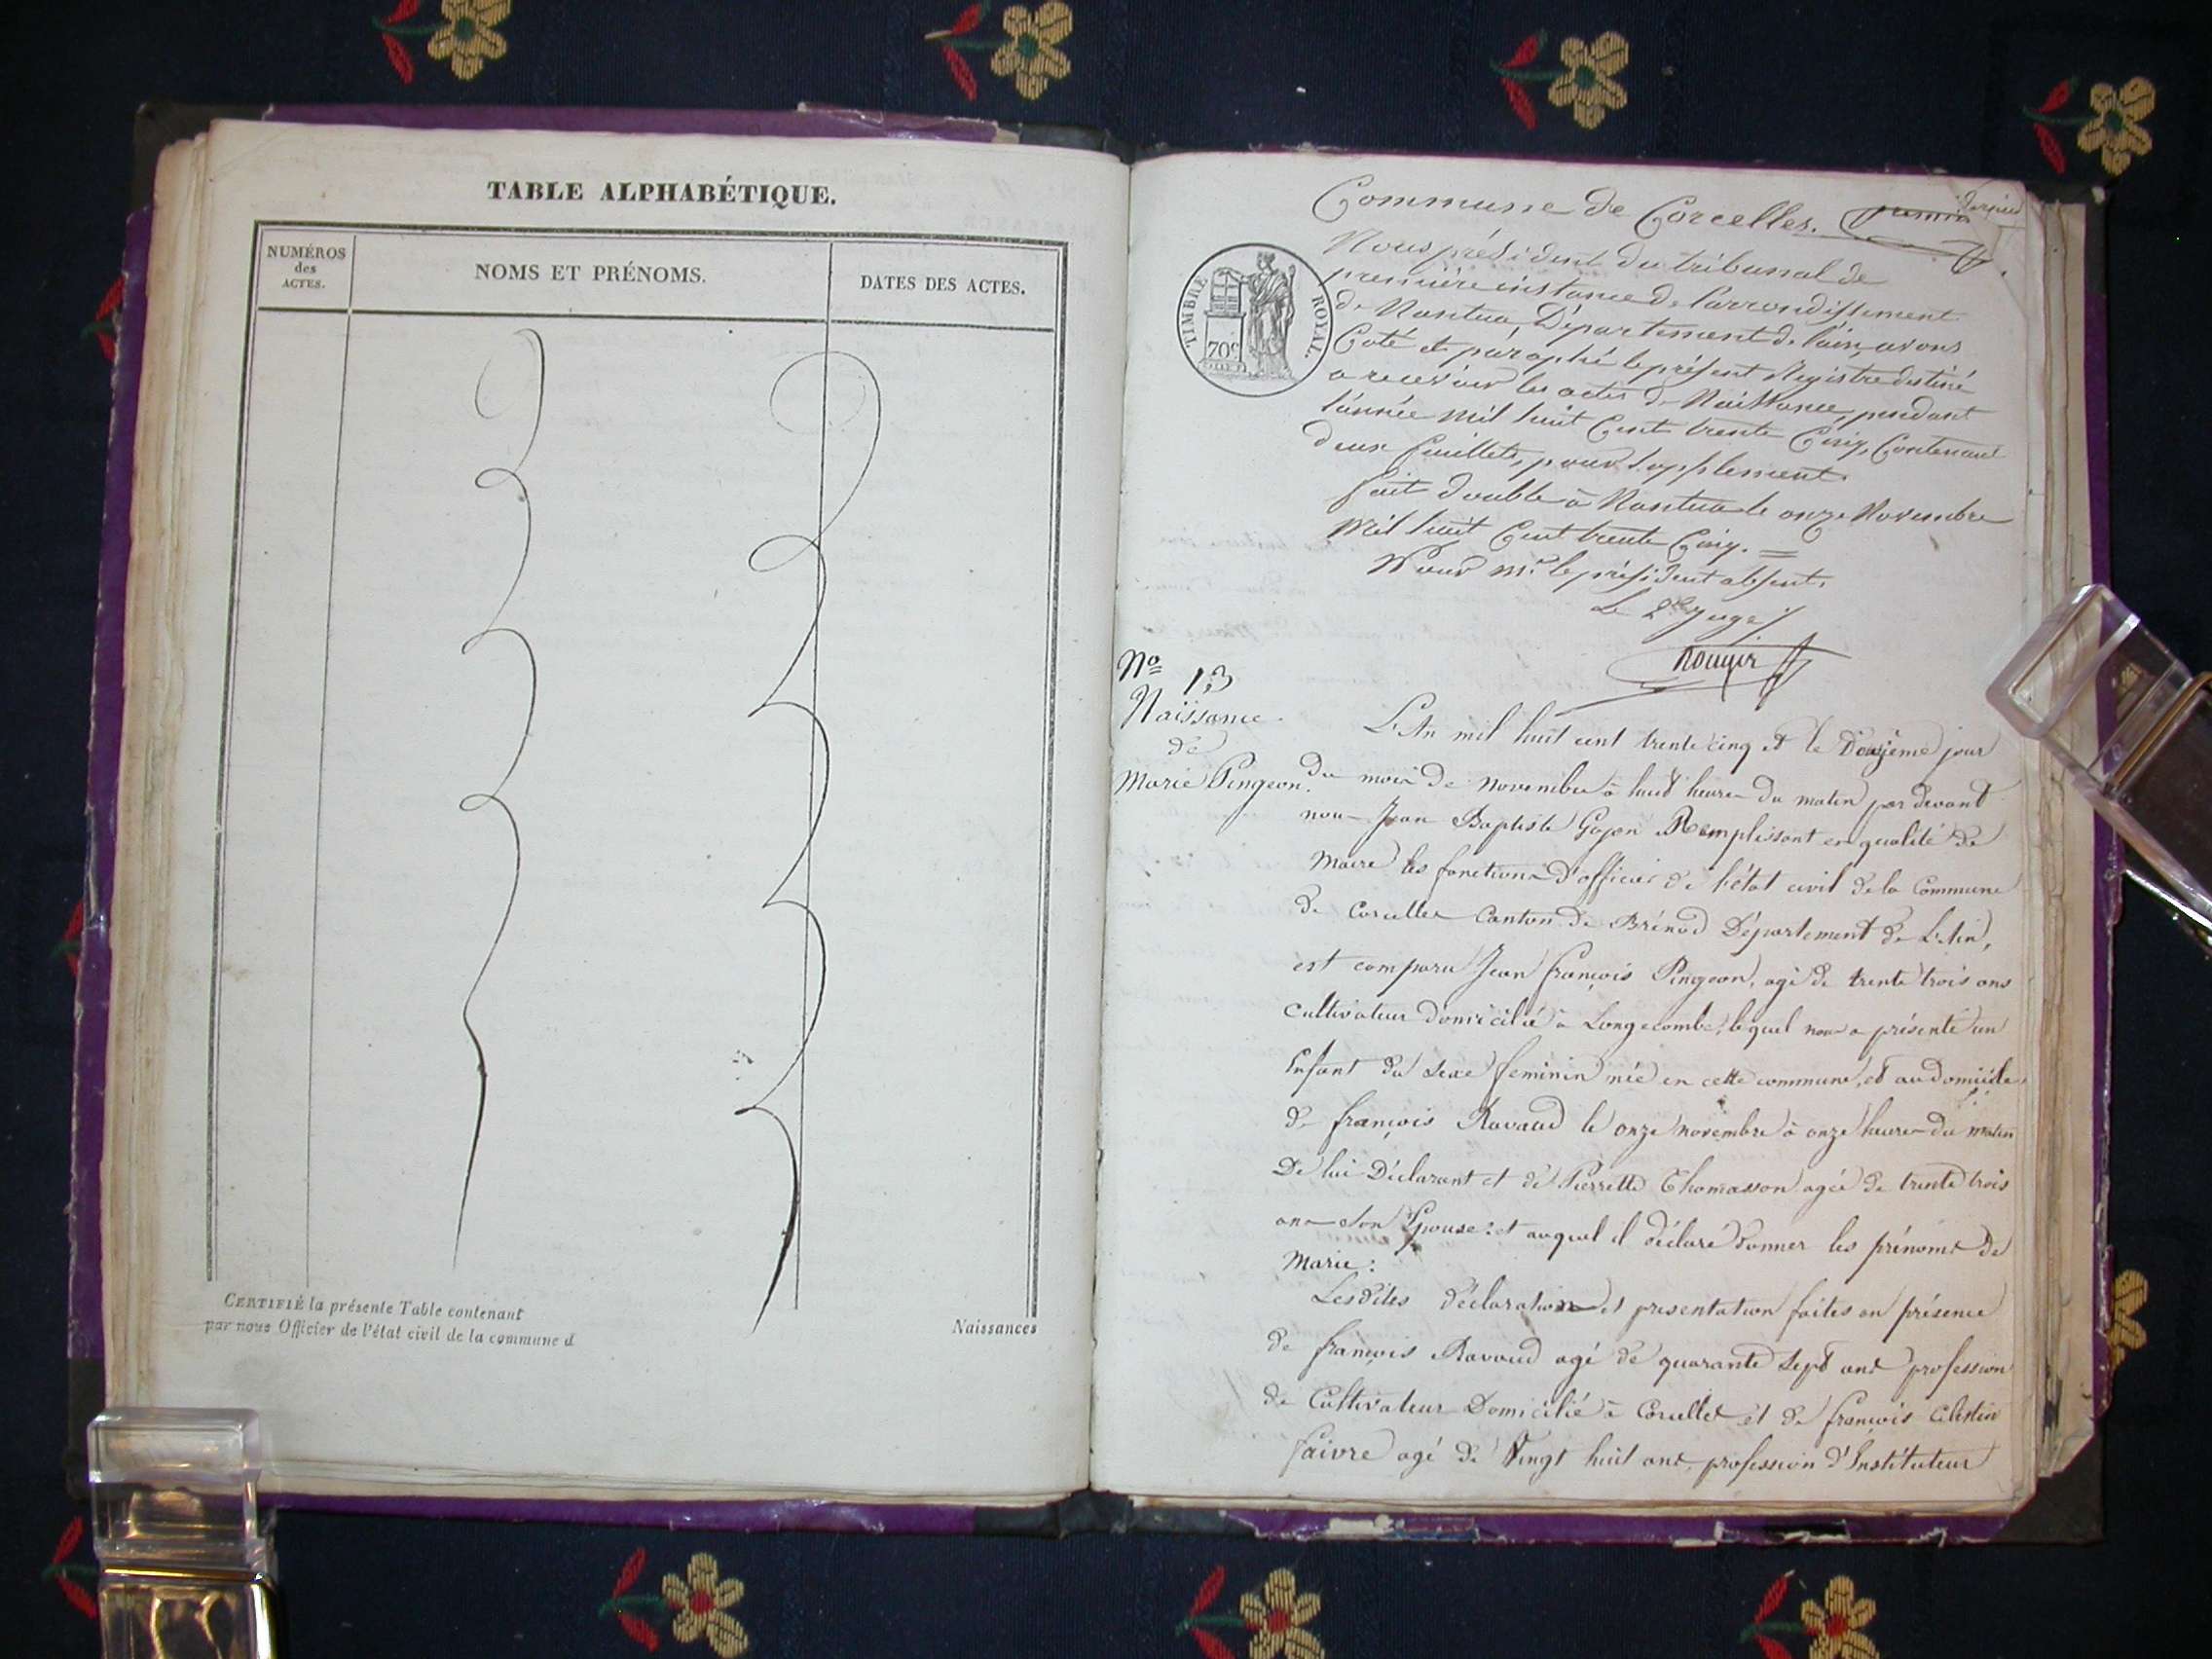 TABLE ALPHABÉTIQUE.
NUMÉROS
des
ACTES.
NOMS ET PRÉNOMS.
DATES DES ACTES.
CERTIFIÉ la présente Table contenant
Naissances
par nous Officier de l'état civil de la commune d
Commune de Corcelles. premier
TIMBRE ROYAL.
70c
Nous président du tribunal de
première instance de l'arrondissement
de Nantua, Département de l'ain, avons
Coté et paraphé le présent Registre destiné
a recevoir les actes de Naissance, pendant
l'année mil huit Cent trente Cinq, Contenant
deux feuillets, pour Supplement.
fait double à Nantua le onze Novembre
Mil huit Cent trente Cinq. =
Pour Mr. le président absent,
Le 2e Juge
Nº 13
Naissance
de
Marie Pingeon.
L'An mil huit cent trente cinq et le Douzième jour
du mois de novembre à huit heures du matin par devant
nous Jean Baptiste Gojon Remplissant en qualité de
Maire les fonctions d'officier de l'état civil de la Commune
de Corcelles Canton de Brénod Département de L'Ain,
est comparu Jean françois Pingeon, agé de trente trois ans
Cultivateur domicilié à Longecombe, lequel nous a présenté un
Enfant du Sexe feminin née en cette commune, et au domicile
de françois Ravaud le onze novembre à onze heures du matin
De lui Déclarant et de Pierrette Thomasson agée de trente trois
ans Son Epouse: et auquel il déclaré donner les prénoms de
Marie:
Lesdites déclaration et presentation faites en présence
de françois Ravaud agé de quarante Sept ans profession
de Cultivateur Domicilié à Corcelles et de françois Célestin
faivre agé de Vingt huit ans, profession d'Instituteur